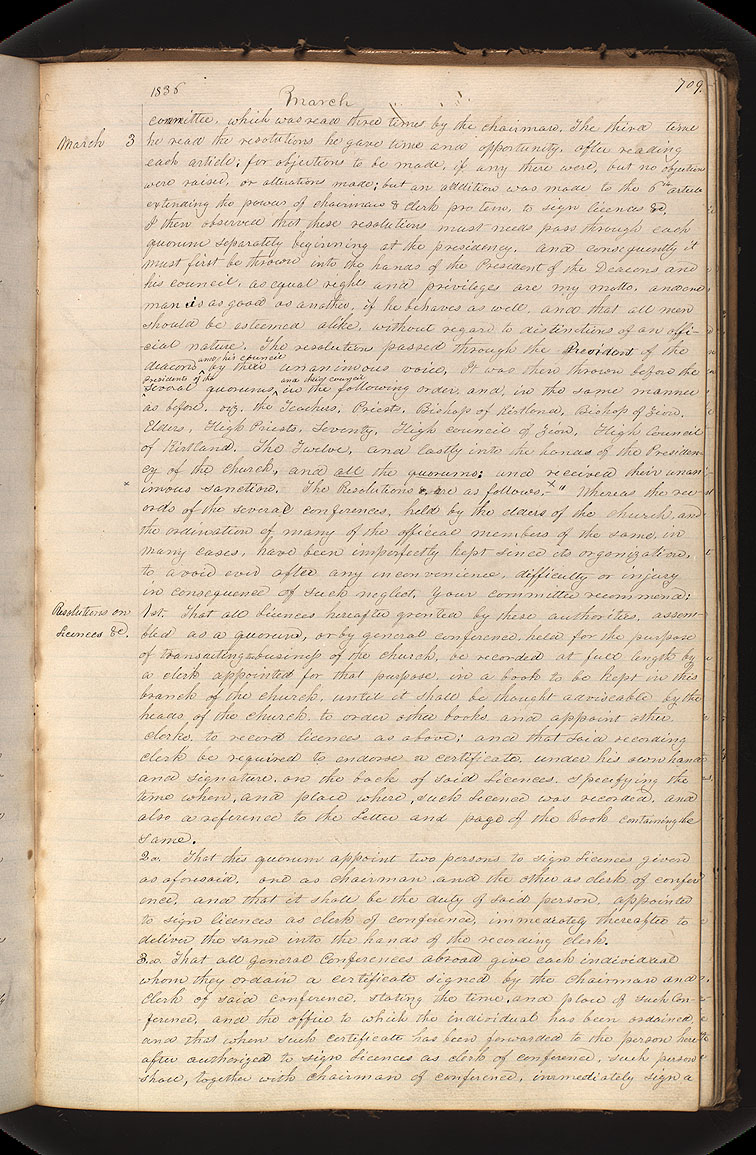 1836
March
709.
committee, which was read three times by the chairman. The third time
March 3 he read the resolutions he gave time and opportunity, after reading
each article; for objections to be made, if any there were, but no objections
were raised, or alterations made; but an addition was made to the 6th article
extending the power of chairman & clerk pro tem, to sign licences &c.
I then observed that these resolutions must needs pass through each
quorum seperately beginning at the presidency, and consequently it
must first be thrown into the hands of the President of the Deacons and
his council, as equal rights and privileges are my motto, and one
man is as good as another, if he behaves as well, and that all men
should be esteemed alike, without regard to distinctions of an offi-
-cial nature. The resolutions passed through the President of the
deacons and his council by their unanimous voice, It was then thrown before the
presidents of the several quorums and their council in the following order, and, in the same manner
as before. viz. the Teachers, Priests, Bishop of Kirtland, Bishop of Zion,
Elders, High Priests, Seventy, High council of Zion, High Council
of Kirtland. The Twelve, and lastly into the hands of the Presiden-
cy of the church, and all the quorums; and received their unan-
* imous sanction. The Resolutions are as follows.- x " Whereas the rec-
ords of the several conferences, held by the elders of the church, and
the ordination of many of the official members of the same, in
many cases, have been imperfectly kept since its organization,
to avoid ever after any inconvenience, difficulty or injury
in consequence of such neglect, your committee recommend:
Resolutions on 1st. That all Licences hereafter granted by these authorities, assem-
Licences &c. bled as a quorum, or by general conference, held for the purpose
of transacting business of the church, be recorded at full length by
a clerk appointed for that purpose, in a book to be kept in this
branch of the church, until it shall be thought adviseable by the
heads of the church, to order other books and appoint other
clerks to record licences as above; and that said recording
clerk be required to endorse a certificate under his own hand
and signature on the back of said Licences, specifying the
time when, and place where, such Licence was recorded, and
also a reference to the Letter and page of the Book containing the
same.
2o. That this quorum appoint two persons to sign Licences given
as aforesaid, one as chairman and the other as clerk of confer
ence, and that it shall be the duty of said person, appointed
to sign licences as clerk of conference, immediately thereafter to
deliver the same into the hands of the recording clerk.
3.o. That all general Conferences abroad give each individual
whom they ordain a certificate signed by the chairman and
clerk of said conference, stating the time, and place of such Con-
ference, and the office to which the individual has been ordained,
and that when such certificate has been forwarded to the person here
after authorized to sign Licences as clerk of conference, such person
shall, together with chairman of conference, immediately sign a